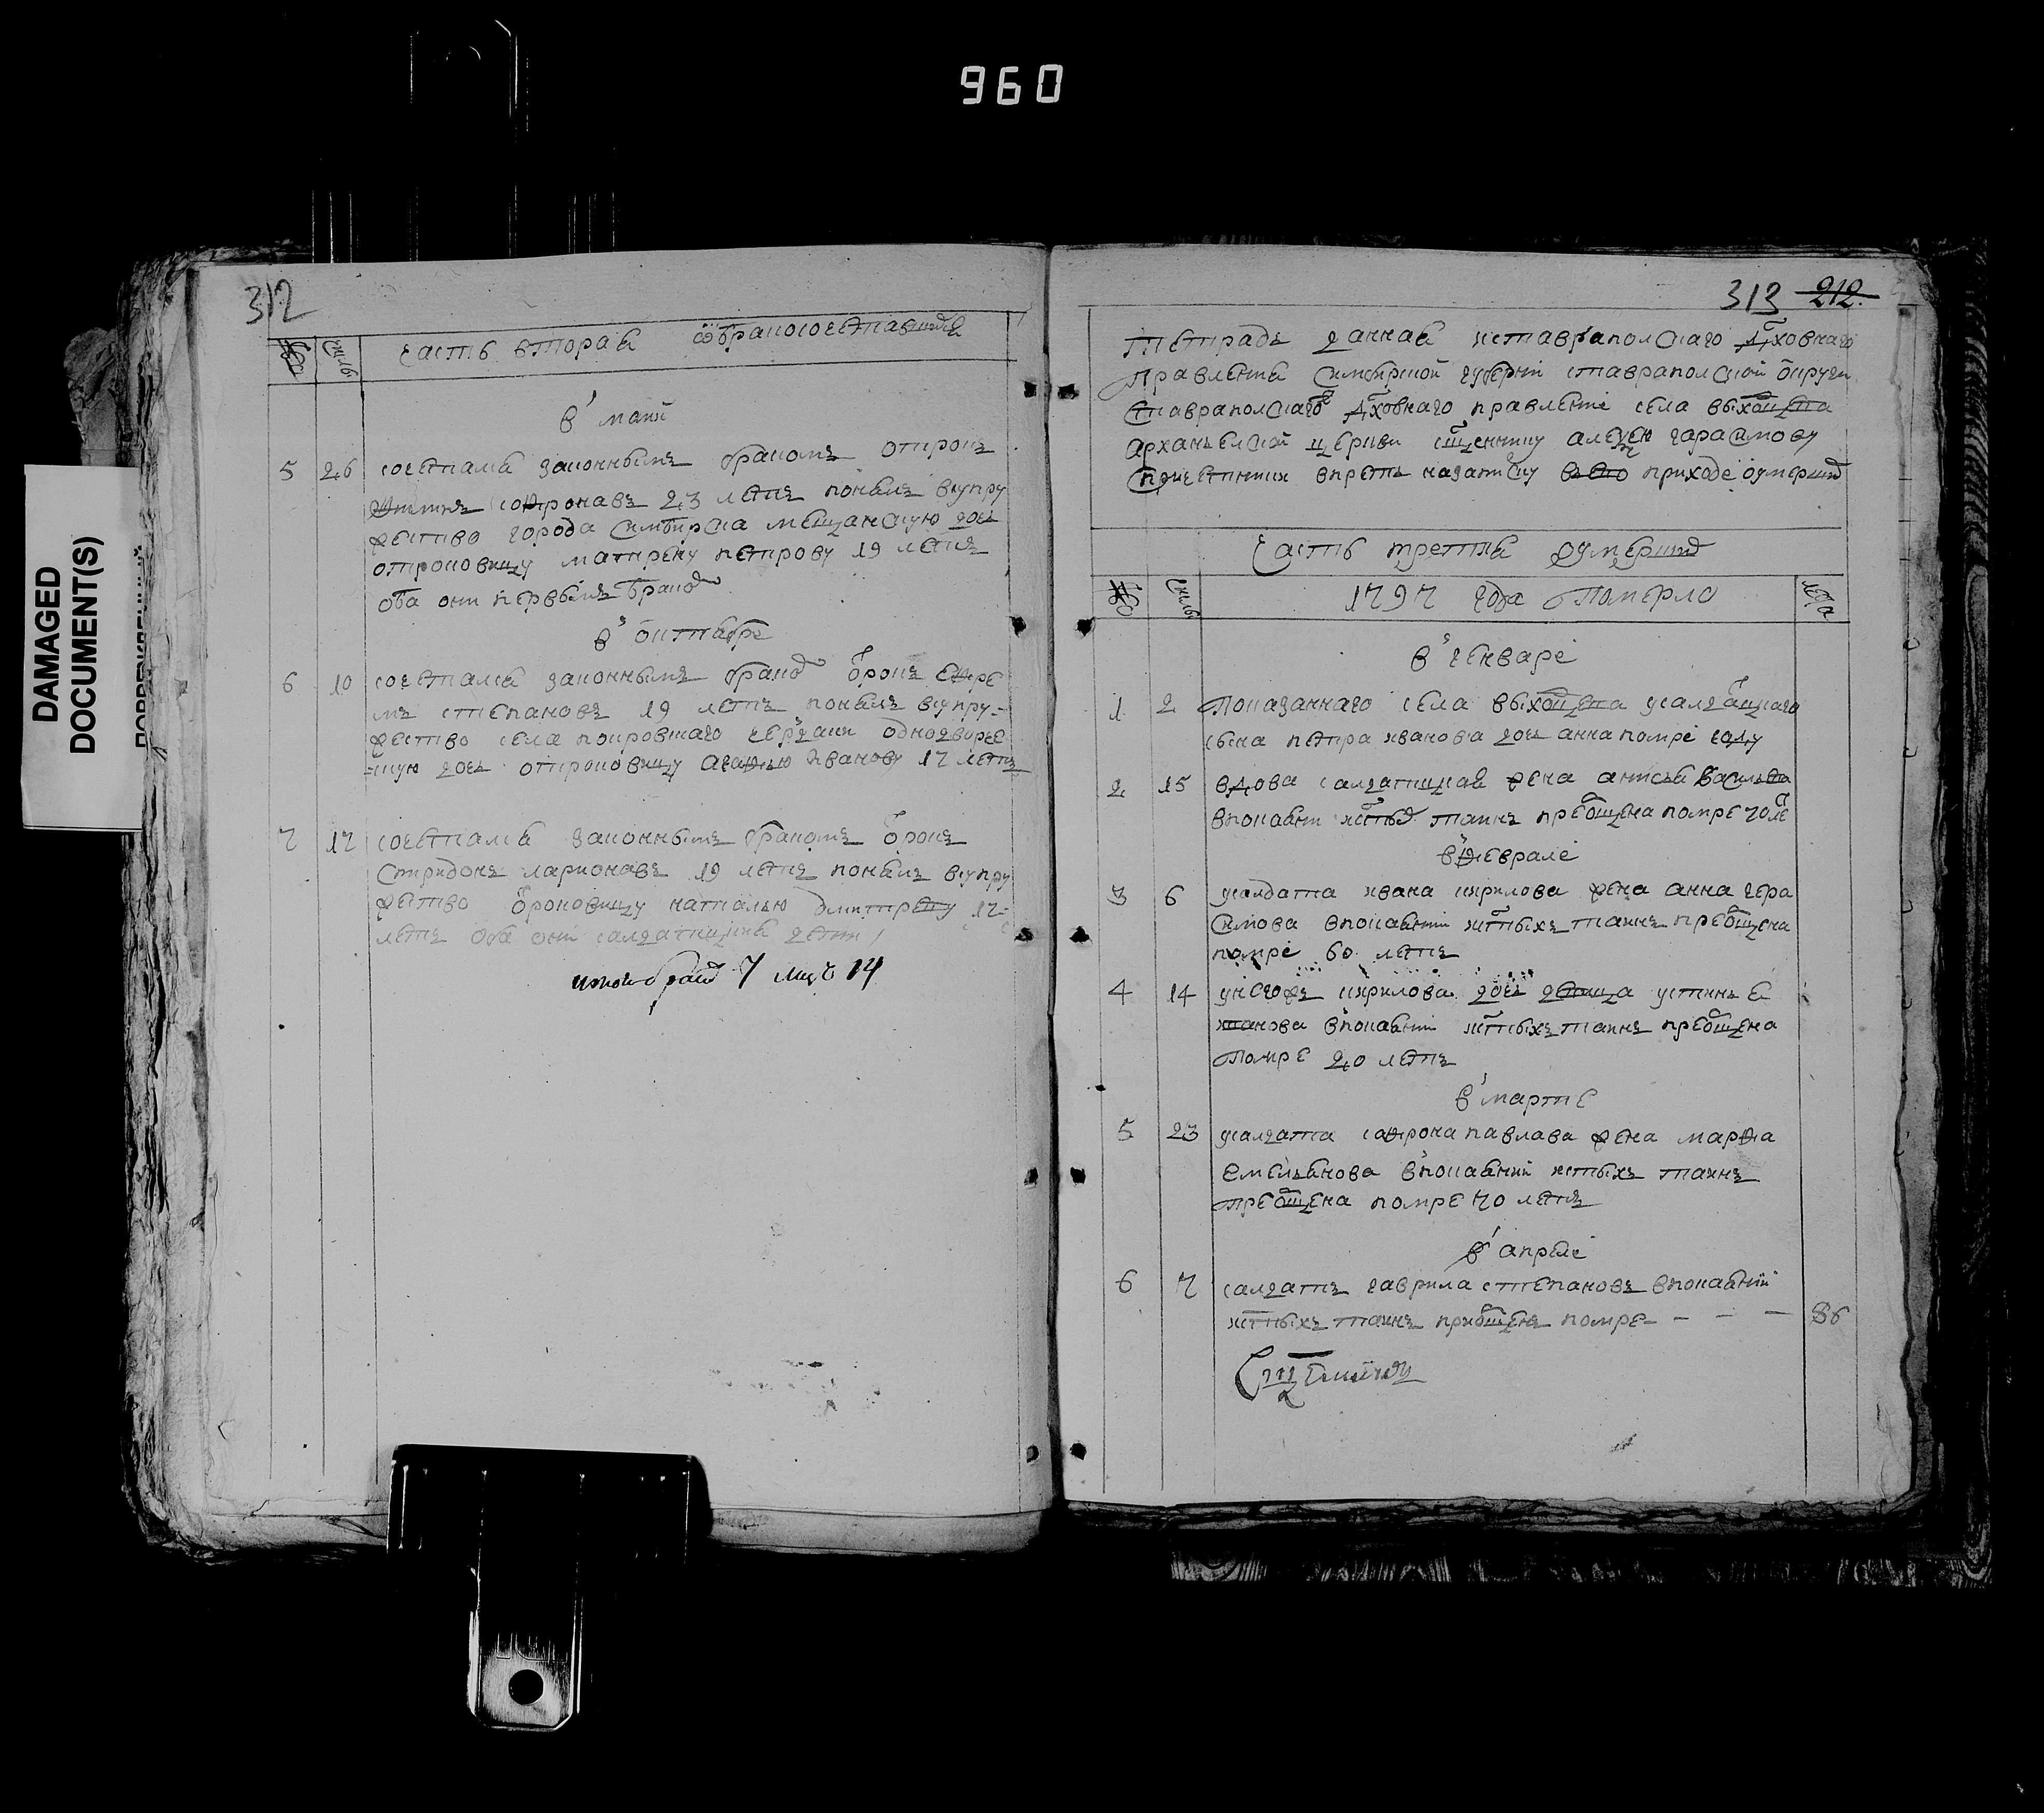 960
DAMAGED
DOCUMENT(S)
312
часть вторая о бракосочетавшихся
в маии
5 26 сочеталса законнымъ бракомъ отрокъ
софронавъ 23 летъ понялъ всупру
жество города симбирска мещанскую дочь
отроковицу матрену петрову 19 летъ
оба они первымъ бракомъ
в октябре
6 10 сочеталса законнымъ бракомъ отрокъ ефре
мъ степановъ 19 летъ понялъ всупру-
жество села покровшаго однодворче
-скую дочь отроковицу агафью иванову 17 летъ
7 17 сочеталса законнымъ бракомъ отрокъ
спиридонъ ларионавъ 19 летъ понялъ всупру
жество отроковицу наталью дмитреву 17-
летъ оба они салдатцкия дети
браковъ 7 14
313 212.
тетрадь даная изтаврапольскаго духовнаго
правления симбирской губернии ставрапольской округи
ставрапольскаго духовнаго правления села
арханьелской церкви священнику алексею гарасимову
спричетники впреть назаписку въ его приходе оумершихъ
часть третия оумершихъ
число лета
1797 года померло
в генваре
1 2 показаннаго села усалдацкаго
сына петра иванова дочь анна помре году
2 15 вдова салдатцкая жена анисья васильева
впокаянии истыхъ таинъ преобщена помре 70 летъ
в феврале
3 6 усалдата ивана кирилова жена анна гера
симова впокаянии истыхъ таинъ преобщена
помре 60 летъ
4 14 унегожъ кирилова дочь девица устинья
иванова впокаянии истыхъ таинъ преобщена
помре 20 летъ
в марте
5 23 усалдата сафрона павлава жена марфа
емельянова впокаянии истыхъ таинъ
преобщена помре 70 летъ
в апреле
6 7 салдатъ гаврила степановъ впокаянии
истыхъ таинъ приобщенъ помре - - - 86